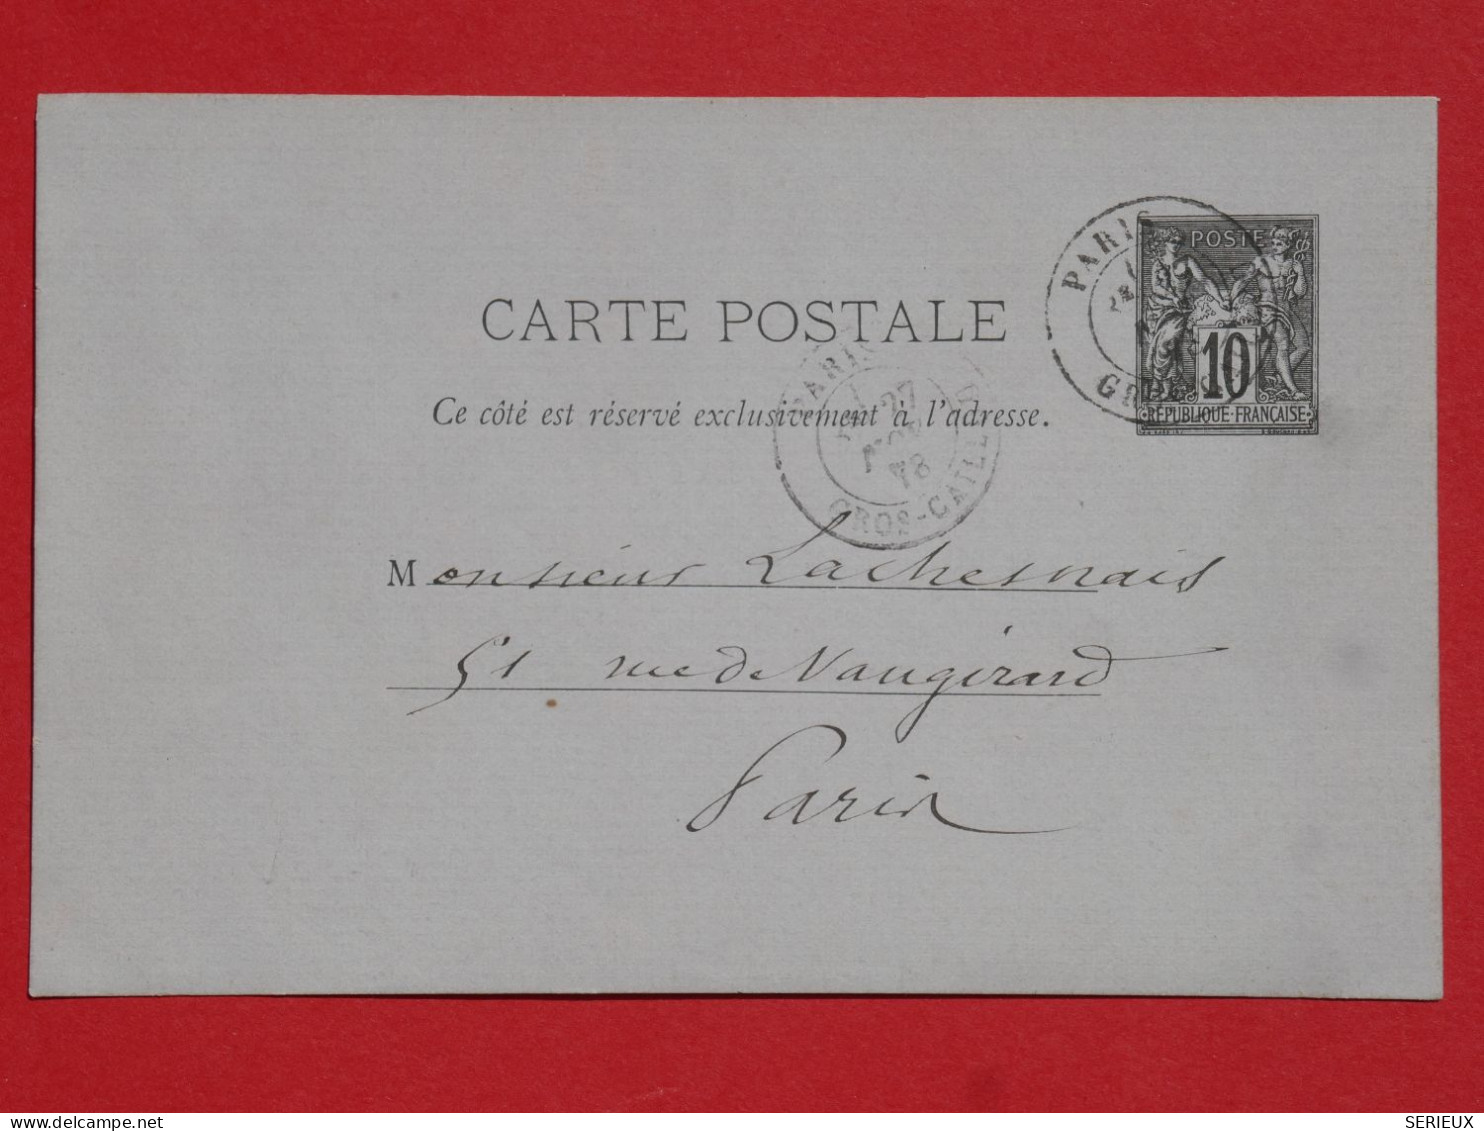 POSTE
10
RÉPUBLIQUE FRANÇAISE
PARIS
CARTE POSTALE
Ce côté est réservé exclusivement à l'adresse.
PARIS
27
NOV
78
GROS-CAILLOU
Monsieur Lachesnais
51 rue de Vaugirard
Paris
SERIEUX